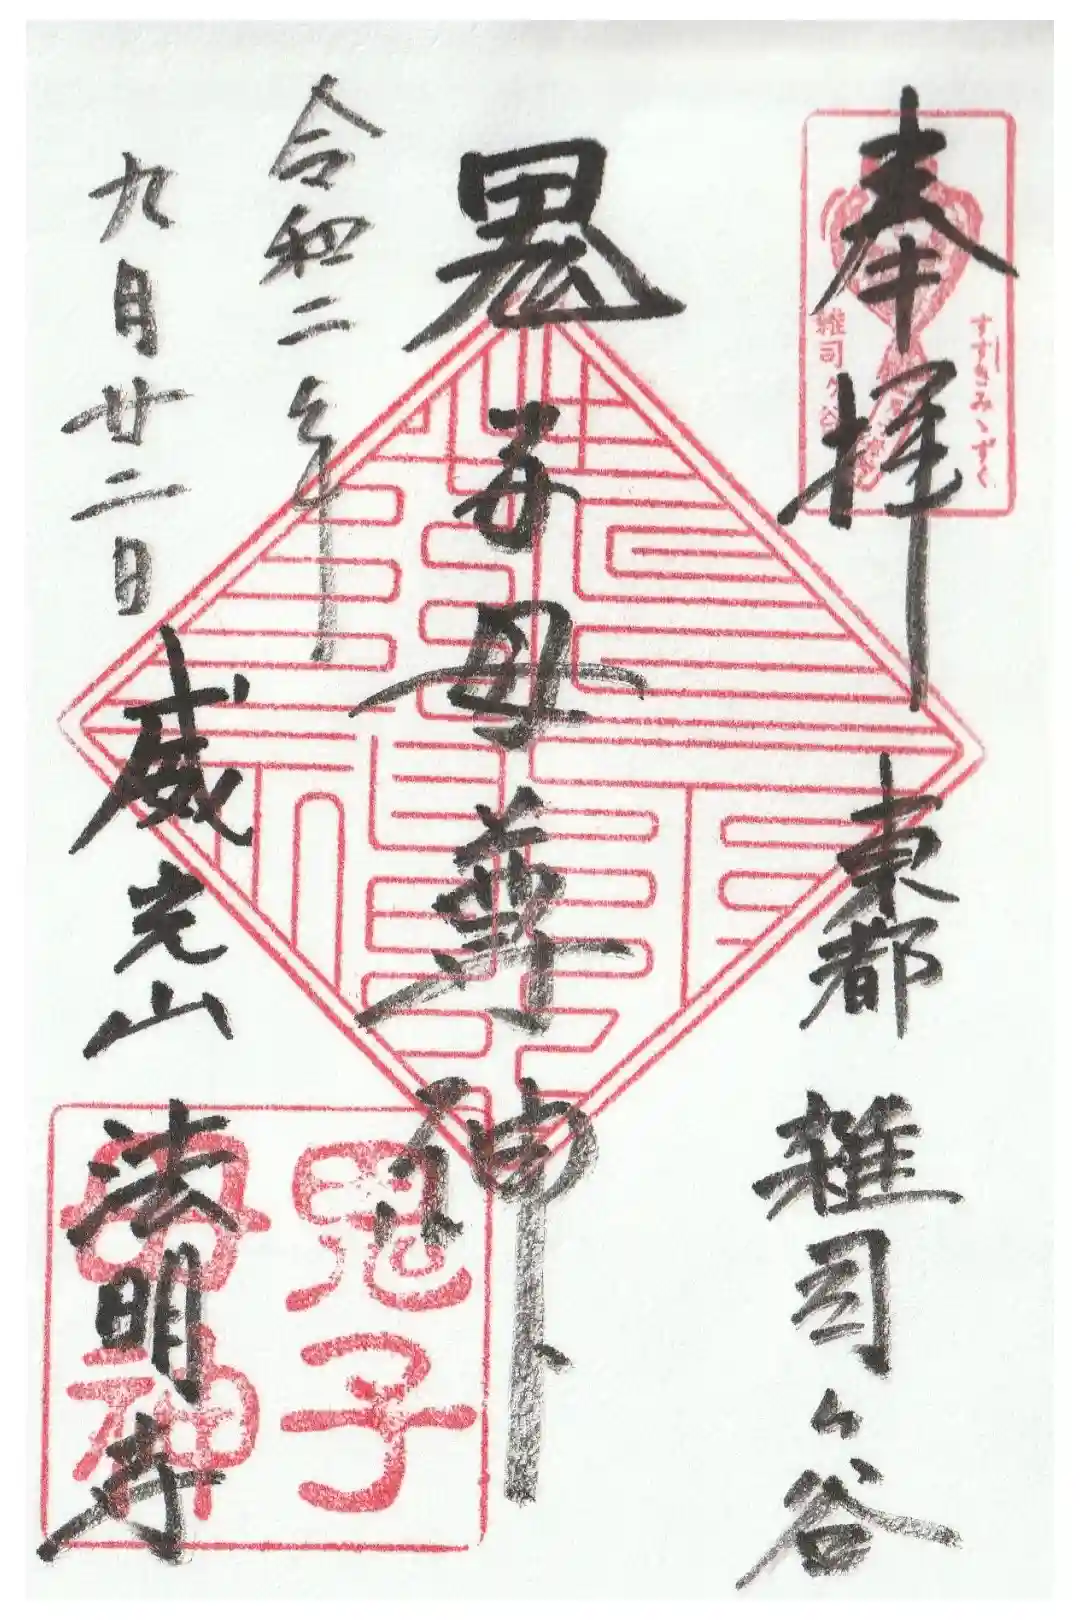 奉拝
すすきみゝずく
雑司ヶ谷
東都 雑司ヶ谷
鬼子母尊神
令和二年
九月廿二日
威光山 法明寺
鬼子母神